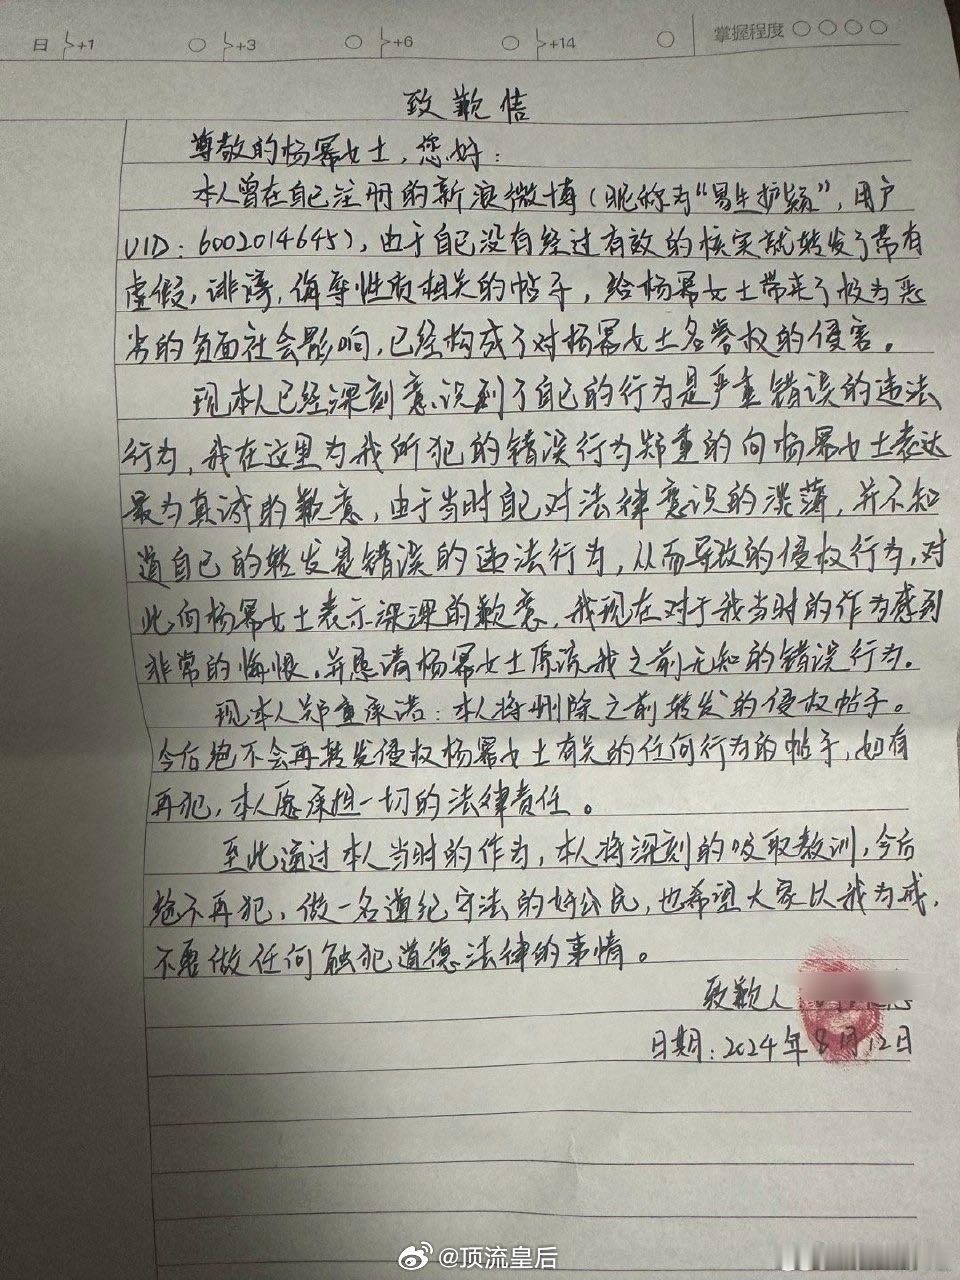 日 +1 +3 +6 +14 掌握程度
致歉信
尊敬的杨幂女士，您好：
本人曾在自己注册的新浪微博（昵称为“易生护颖”，用户
UID：6002014645），由于自己没有经过有效的核实就转发了带有
虚假，诽谤，侮辱性质相关的帖子，给杨幂女士带来了极为恶
劣的负面社会影响，已经构成了对杨幂女士名誉权的侵害。
现本人已经深刻意识到了自己的行为是严重错误的违法
行为，我在这里为我所犯的错误行为郑重的向杨幂女士表达
最为真诚的歉意，由于当时自己对法律意识的淡薄，并不知
道自己的转发是错误的违法行为，从而导致的侵权行为，对
此向杨幂女士表示深深的歉意，我现在对于我当时的作为感到
非常的悔恨，并恳请杨幂女士原谅我之前无知的错误行为。
现本人郑重承诺：本人将删除之前转发的侵权帖子。
今后绝不会再转发侵权杨幂女士有关的任何行为的帖子，如有
再犯，本人愿承担一切的法律责任。
至此通过本人当时的作为，本人将深刻的吸取教训，今后
绝不再犯，做一名遵纪守法的好公民，也希望大家以我为戒，
不要做任何触犯道德法律的事情。
致歉人
日期：2024年8月12日
@顶流皇后